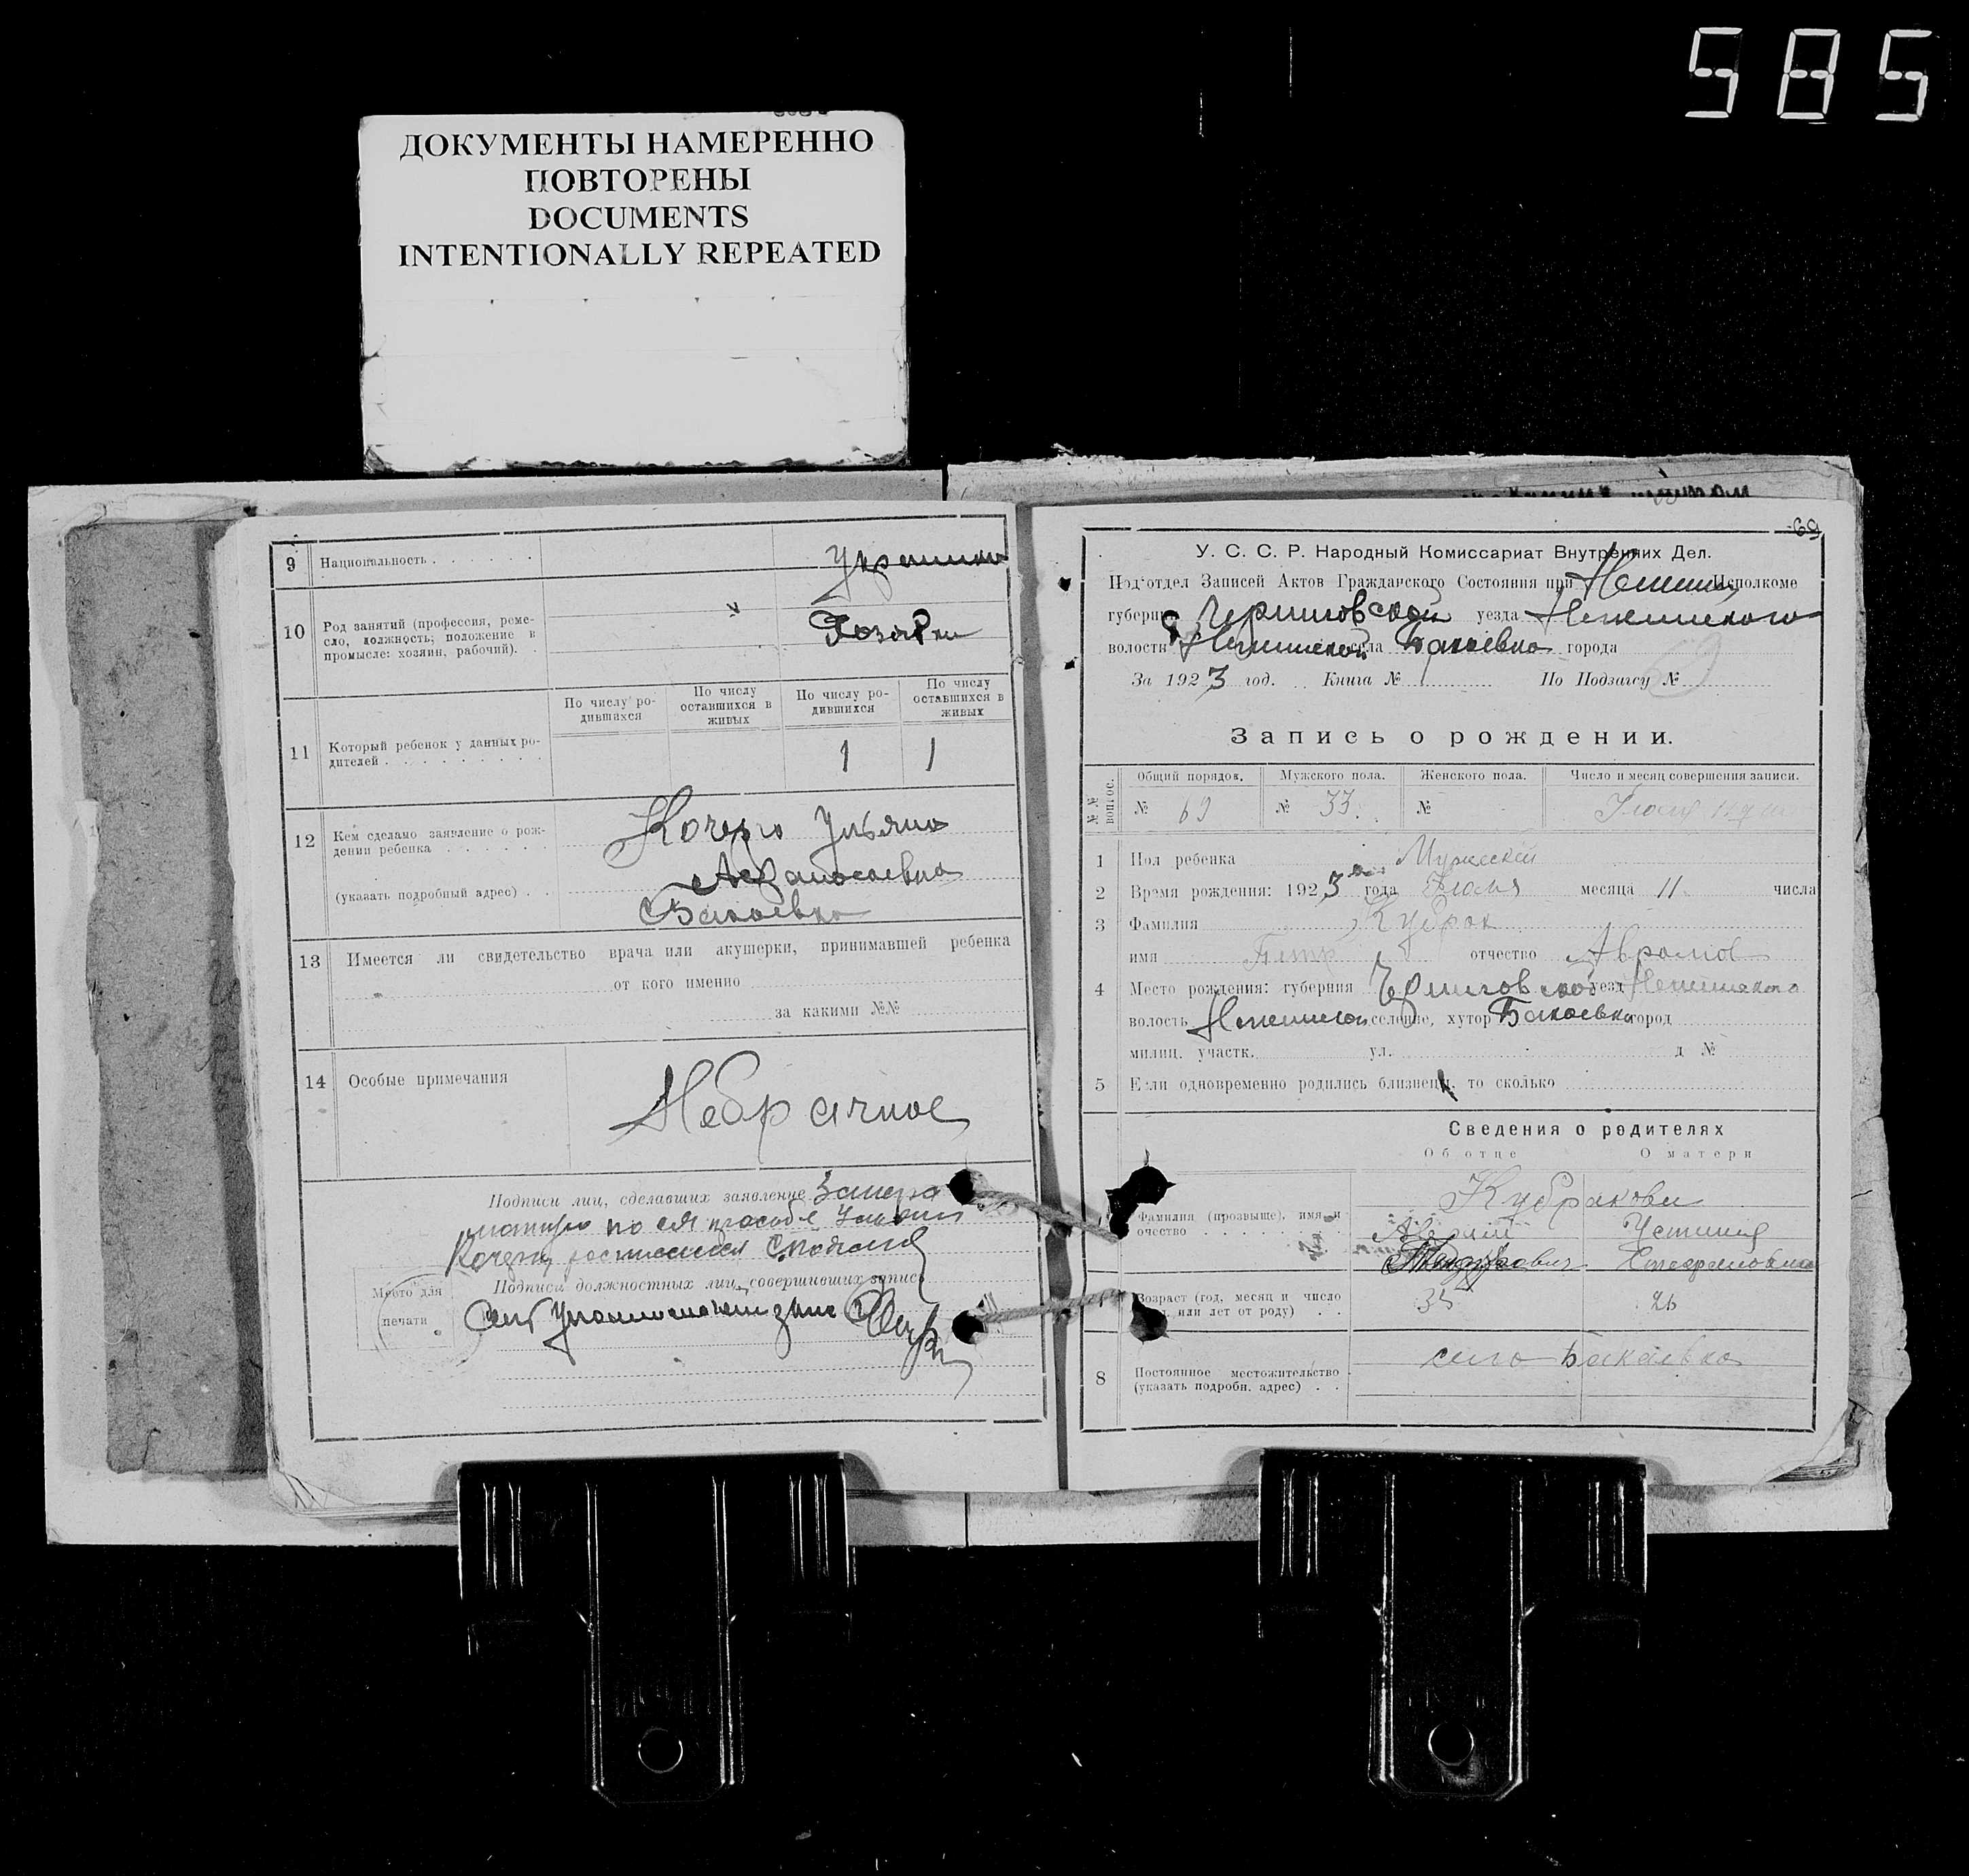 585
ДОКУМЕНТЫ НАМЕРЕННО
ПОВТОРЕНЫ
DOCUMENTS
INTENTIONALLY REPEATED
9 Национальность . . . . . . Украинка
10 Род занятий (профессия, реме-
сло, должность; положение в
промысле: хозяин, рабочий). .
11 Который ребенок у данных ро-
дителей . . . . . . . . . .
По числу ро-
дившихся
По числу
оставшихся в
живых
По числу ро-
дившихся
По числу
оставшихся в
живых
1 1
12 Кем сделано заявление о рож-
дении ребенка . . . . . . Кочерга Ульяна
Афанасьевна
(указать подробный адрес) . . Бакаевка
13 Имеется ли свидетельство врача или акушерки, принимавшей ребенка
от кого именно
за какими №№
14 Особые примечания Небрачное
Подписи лиц, сделавших заявление
Подписи должностных лиц, совершивших запись
Место для
печати
69
У. С. С. Р. Народный Комиссариат Внутренних Дел.
Под'отдел Записей Актов Гражданского Состояния при Нежин Исполкоме
губернии Черниговской уезда Неженского
волости Неженской села Бакаевка города
За 1923 год. Книга № По Подзагсу №
Запись о рождении.
№№ вопрос.
Общий порядов. Мужского пола. Женского пола. Число и месяц совершения записи.
№ 69 № 33 № -
1 Пол ребенка Мужеский
2 Время рождения: 1923 года Июля месяца 11 числа
3 Фамилия Кубрак
имя Петр отчество Аврамов
4 Место рождения: губерния Черниговской уезд Неженского
волость Неженской селение, хутор Бакаевка город
милиц. участк. ул. д №
5 Если одновременно родились близнецы, то сколько
Сведения о родителях
Об отце О матери
Фамилия (прозвыще), имя и
очество . . . . . . . .
Кубракови
Устиния
Возраст (год, месяц и число
или лет от роду) . . 35 26
8 Постоянное местожительство
(указать подробн. адрес) . .
село Бакаевка